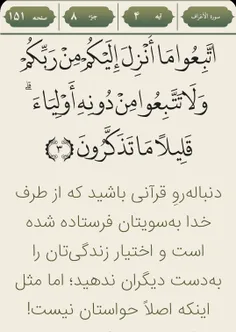 سورة الأعراف آیه ۴ جزء ۸ صفحه ۱۵۱
ٱتَّبِعُوا۟ مَآ أُنزِلَ إِلَيْكُم مِّن رَّبِّكُمْ
وَلَا تَتَّبِعُوا۟ مِن دُونِهِۦٓ أَوْلِيَآءَ ۗ
قَلِيلًا مَّا تَذَكَّرُونَ ﴿٣﴾
دنباله‌رو قرآنی باشید که از طرف
خدا به‌سویتان فرستاده شده
است و اختیار زندگی‌تان را
به‌دست دیگران ندهید؛ اما مثل
اینکه اصلاً حواستان نیست!